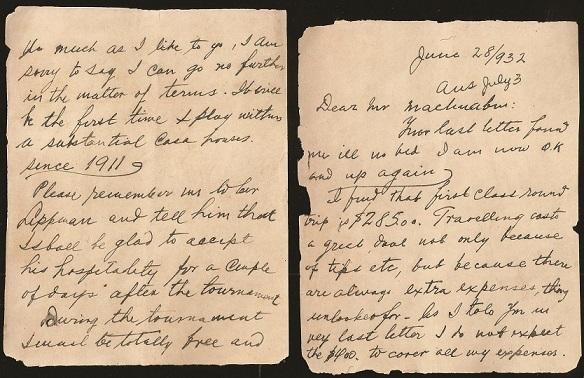 June 28/932
Ans July 3
Dear Mr Machuabu:
Your last letter found
me ill in bed I am now O.K
and up again
I find that first class round
trip is $285.00. Travelling costs
a great deal not only because
of tips etc, but because there
are always extra expenses, thing
unlooked for - As I told you in
my last letter I do not expect
the $400. to cover all my expenses.
So much as I like to go, I am
sorry to say I can go no further
in the matter of terms. It since
be the first time I play within
a substantial Casa houses.
since 1911
Please remember me to Mr
Lippman and tell him that
I shall be glad to accept
his hospitality for a couple
of days after the tournament
During the tournament
I must be totally free and